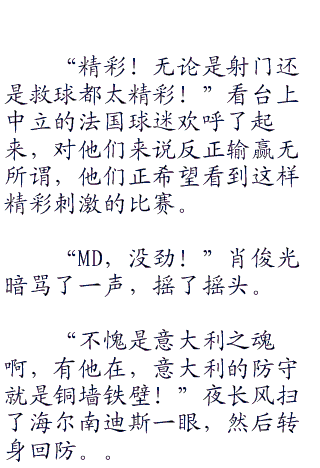 “精彩！无论是射门还
是救球都太精彩！”看台上
中立的法国球迷欢呼了起
来，对他们来说反正输赢无
所谓，他们正希望看到这样
精彩刺激的比赛。
“MD，没劲！”肖俊光
暗骂了一声，摇了摇头。
“不愧是意大利之魂
啊，有他在，意大利的防守
就是铜墙铁壁！”夜长风扫
了海尔南迪斯一眼，然后转
身回防。。